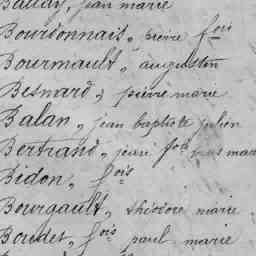 Balray, jean marie
Bourdonnais, pierre fois
Bourmault, augustin
Besnard, pierre marie
Balan, jean baptiste julien
Bertrand, jean fois marie
Bidon, fois
Bourgault, théodore marie
Boudet, fois paul marie